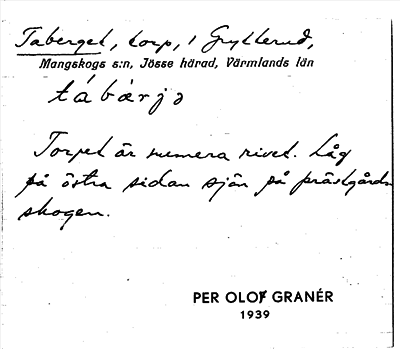 Taberget, torp, i Grytterud,
Mangskogs s:n, Jösse härad, Värmlands län
tábærjə
Torpet är numera rivet. Låg
på östra sidan sjön på prästgårds
skogen.
PER OLOF GRANÉR
1939